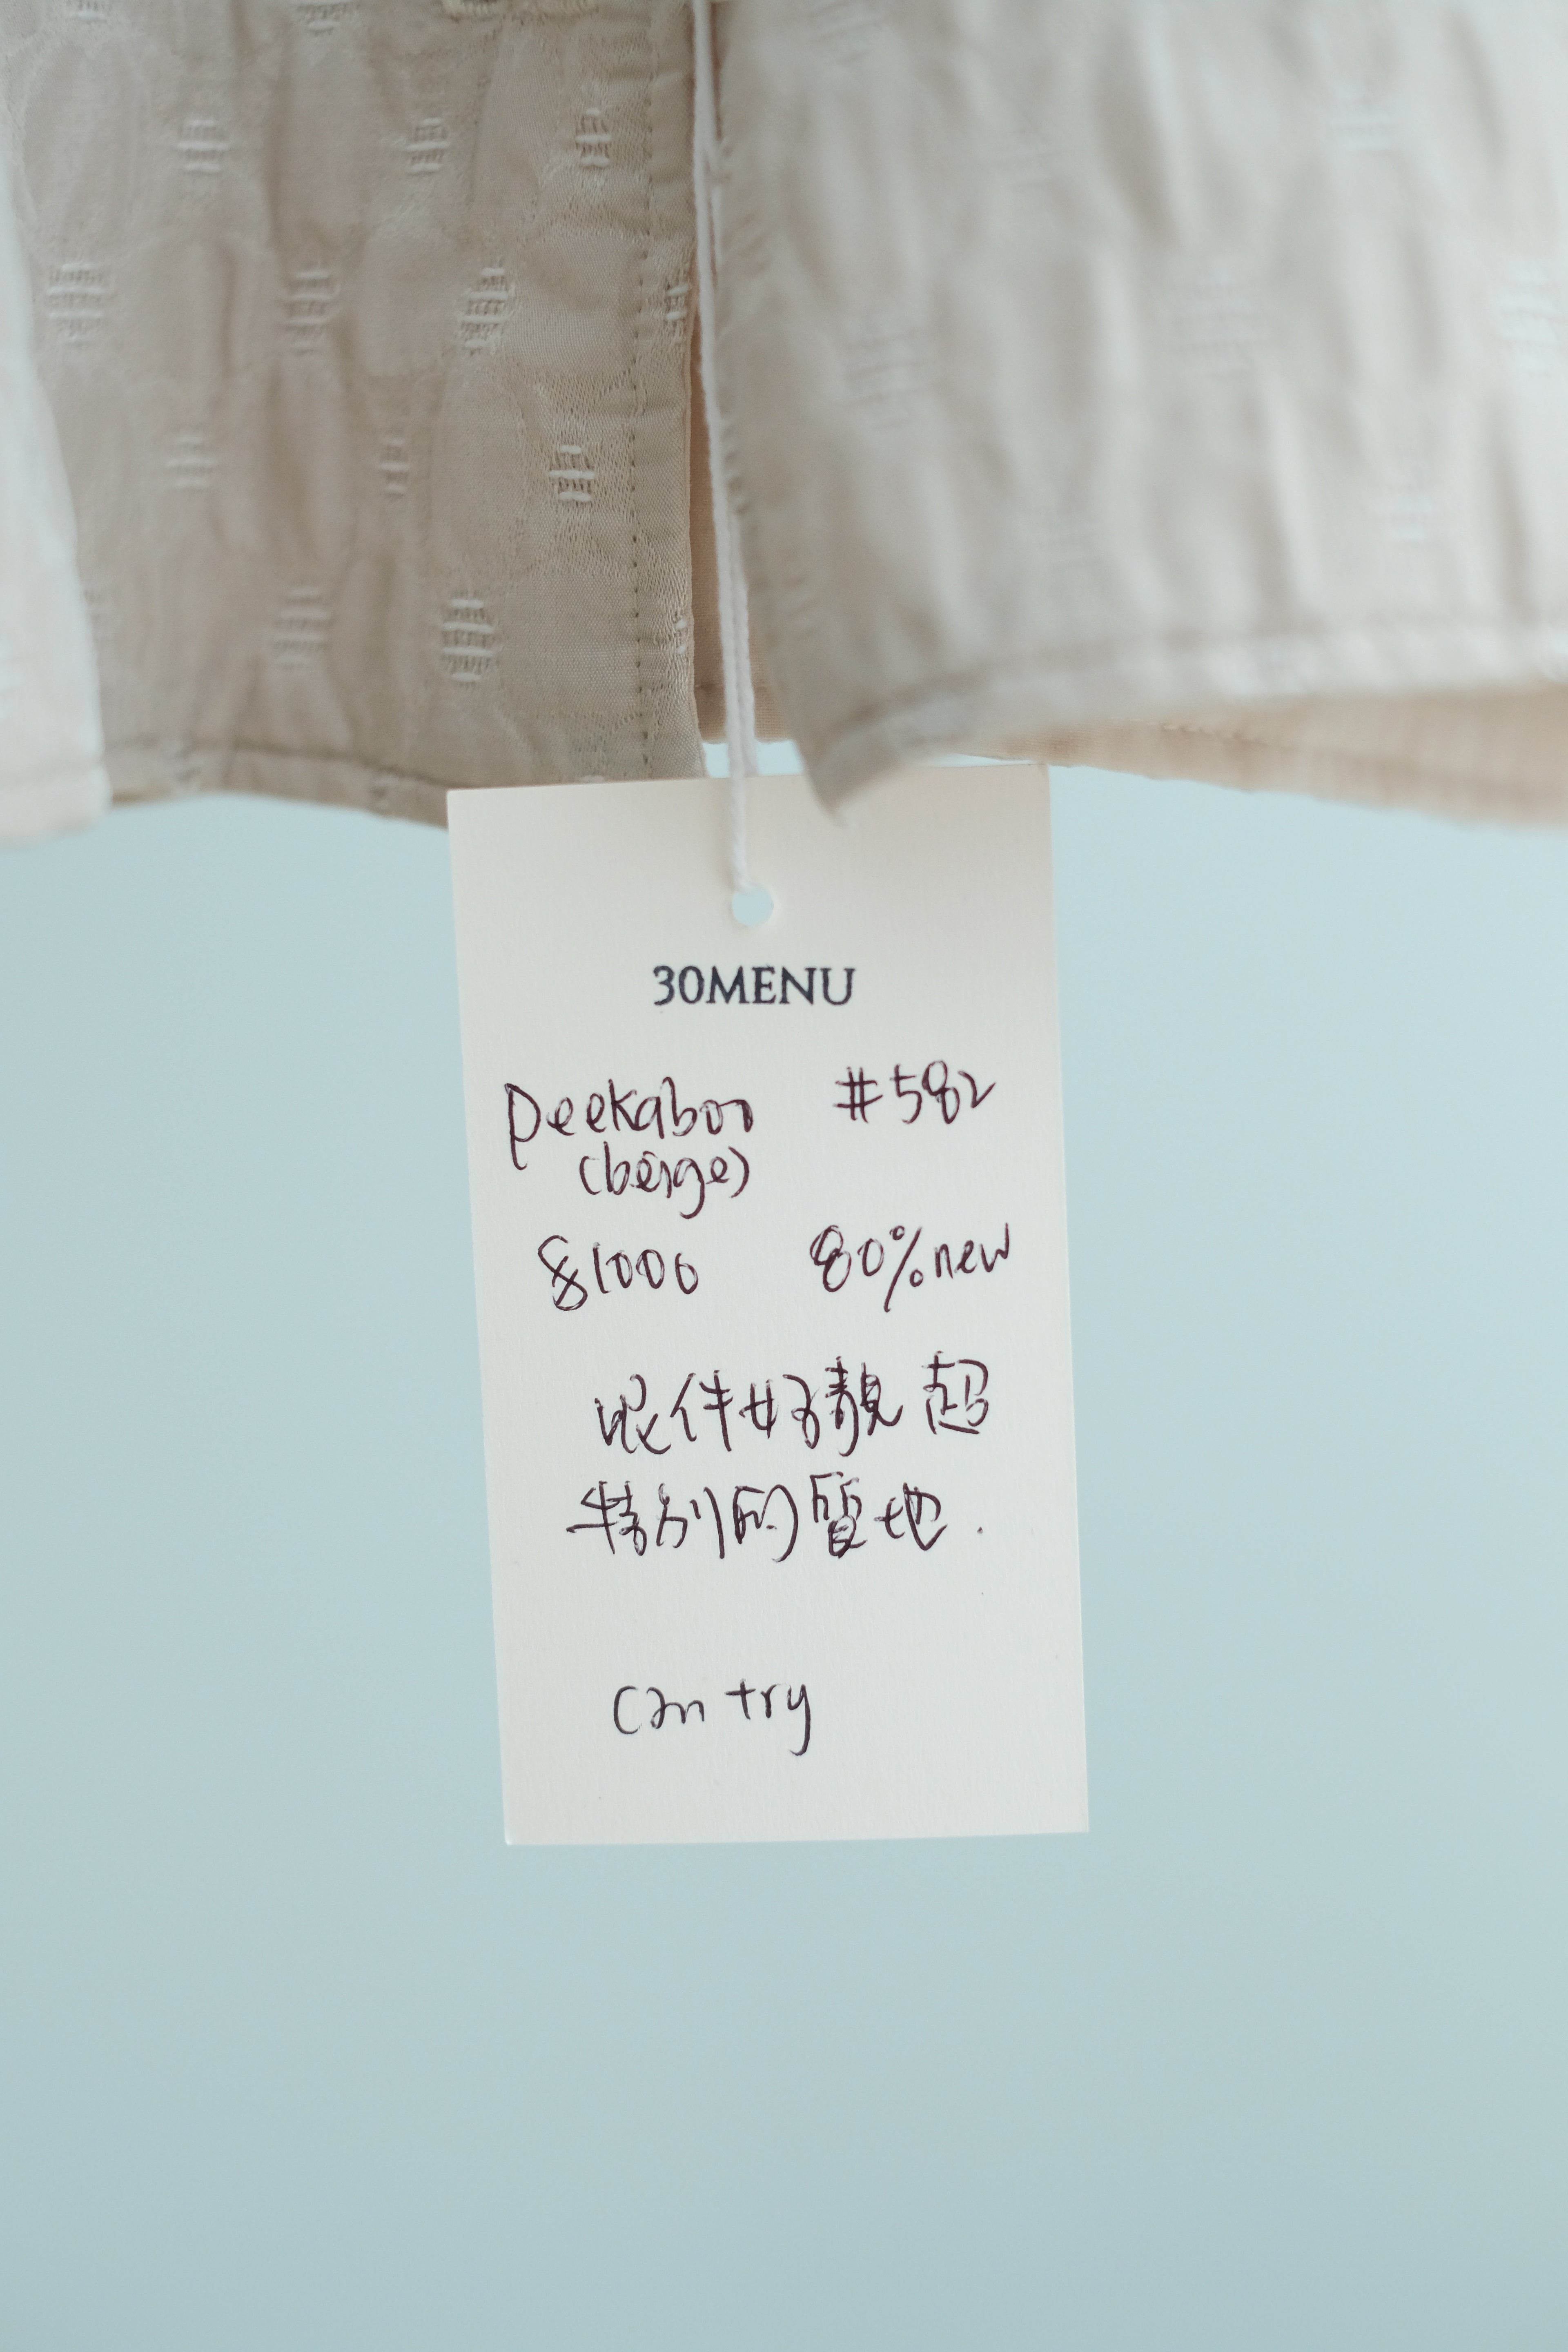 30MENU
peekaboo #582
(beige)
$1000 80%new
呢件好靚 超
特別的質地.
Can try